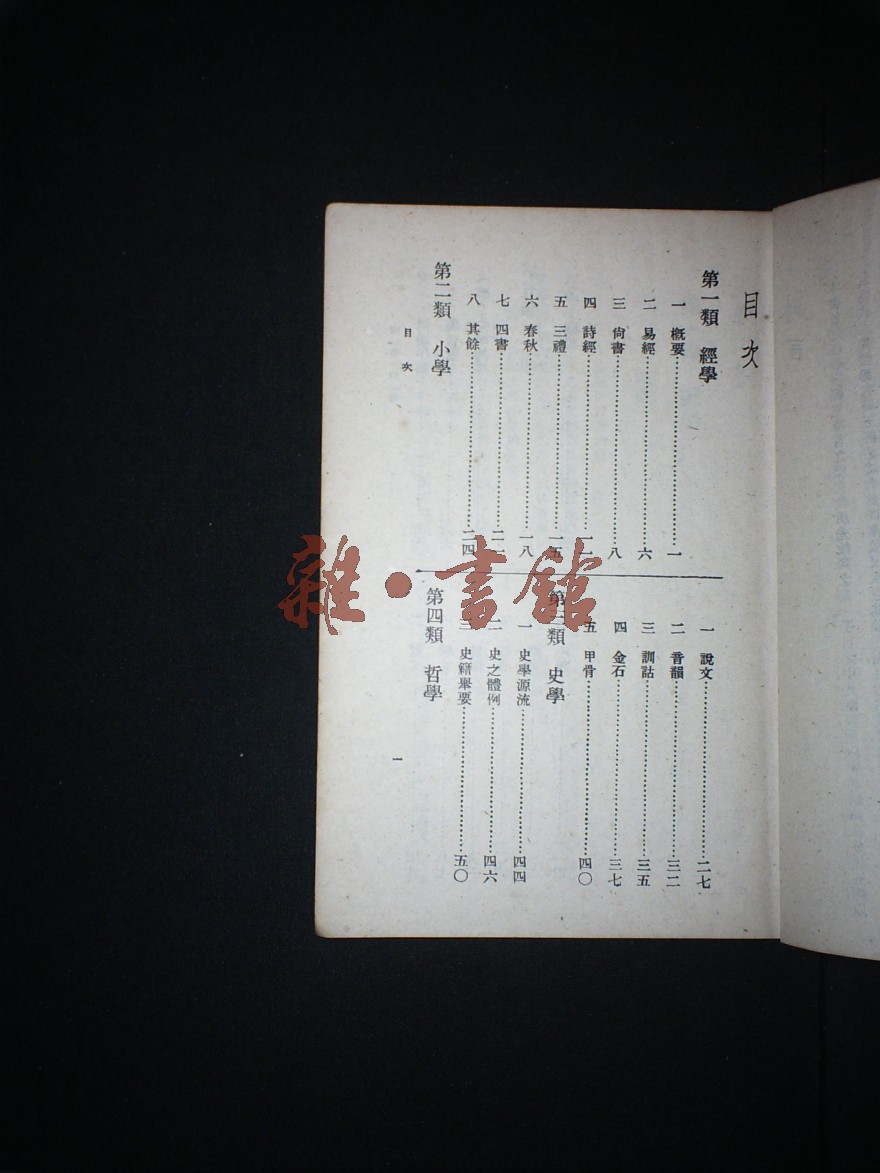 目次
第一類 經學
一 概要……一
二 易經……六
三 尙書……八
四 詩經……一一
五 三禮……一五
六 春秋……一八
七 四書……二一
八 其餘……二四
第二類 小學
一 說文……二七
二 音韻……三二
三 訓詁……三五
四 金石……三七
五 甲骨……四〇
第三類 史學
一 史學源流……四四
二 史之體例……四六
三 史籍舉要……五〇
第四類 哲學
目次
一
雜·書館